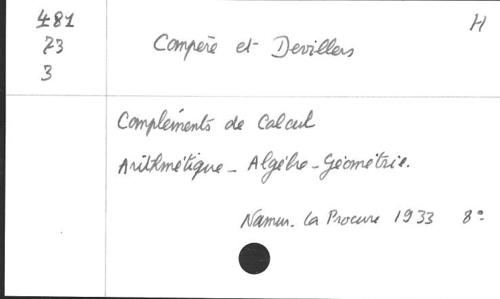 481
73
3
H
Compère et Devillers
Compléments de Calcul
Arithmétique - Algèbre - Géométrie.
Namur. La Procure 1933 8°